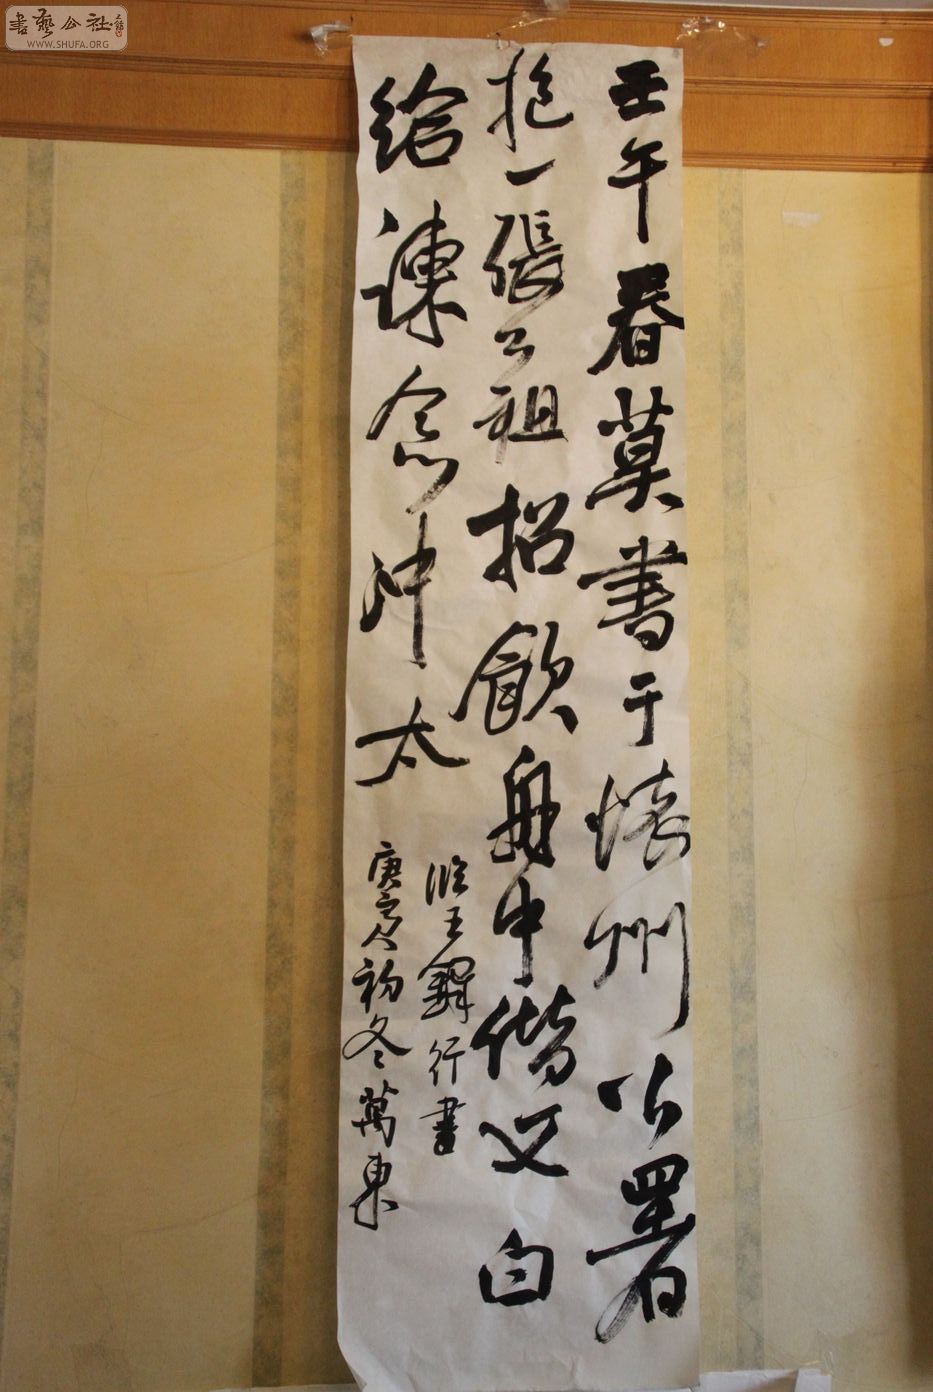 壬午春莫書于懷州公署
抱一張公祖招飲舟中偕文白
給諫念冲太
臨王鐸行書
庚寅初冬萬東
書藝公社
WWW.SHUFA.ORG